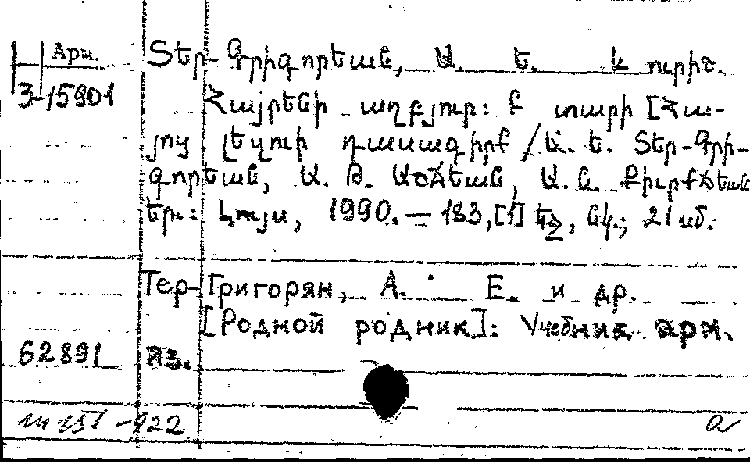 Арм. Տեր-Գրիգորեան, Ա. Ե. և ուրիշ.
3-15901 Հայրենի աղբյուր: Բ տարի [Հա-
յոց լեզուի դասագիրք / Ա. Ե. Տեր-Գրի-
գորեան, Ա. Թ. Աճճեան, Ա. Ն. Քիւրքճեան
Եր.: Լույս, 1990. — 183, [1] եջ, նկ.; 21 սմ.
Тер-Григорян, А. Е. и др.
[Родной родник]: Учебник арм.
62891 яз.
-922 a